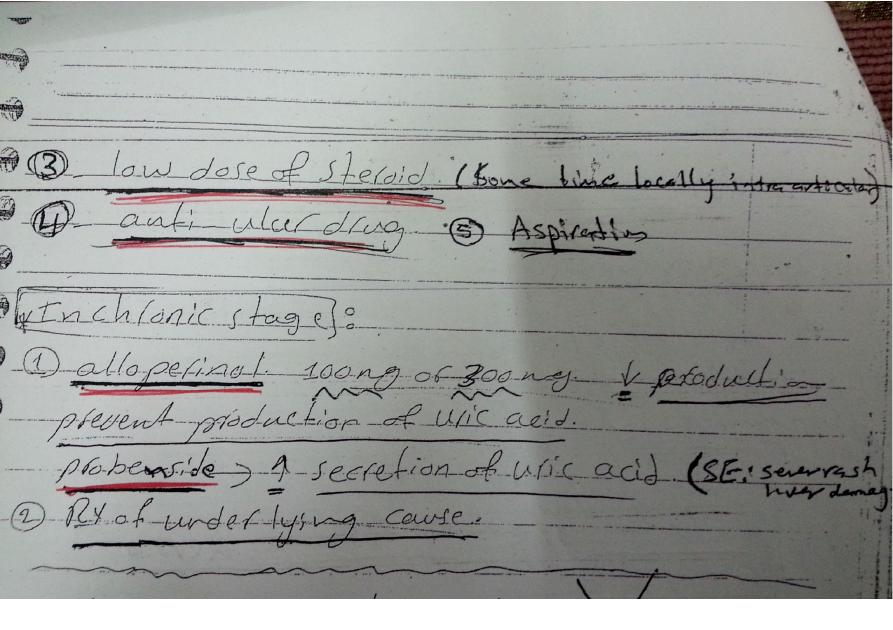 ③ low dose of steroid. (some time locally intra articular)
④ anti ulcer drug ⑤ Aspiration
In chronic stage:
① alloperinal 100 mg or 300 mg. ↓ production
prevent production of uric acid.
probenside → ↑ secretion of uric acid (SE: sever rash
liver damag
② RX of underlying cause.